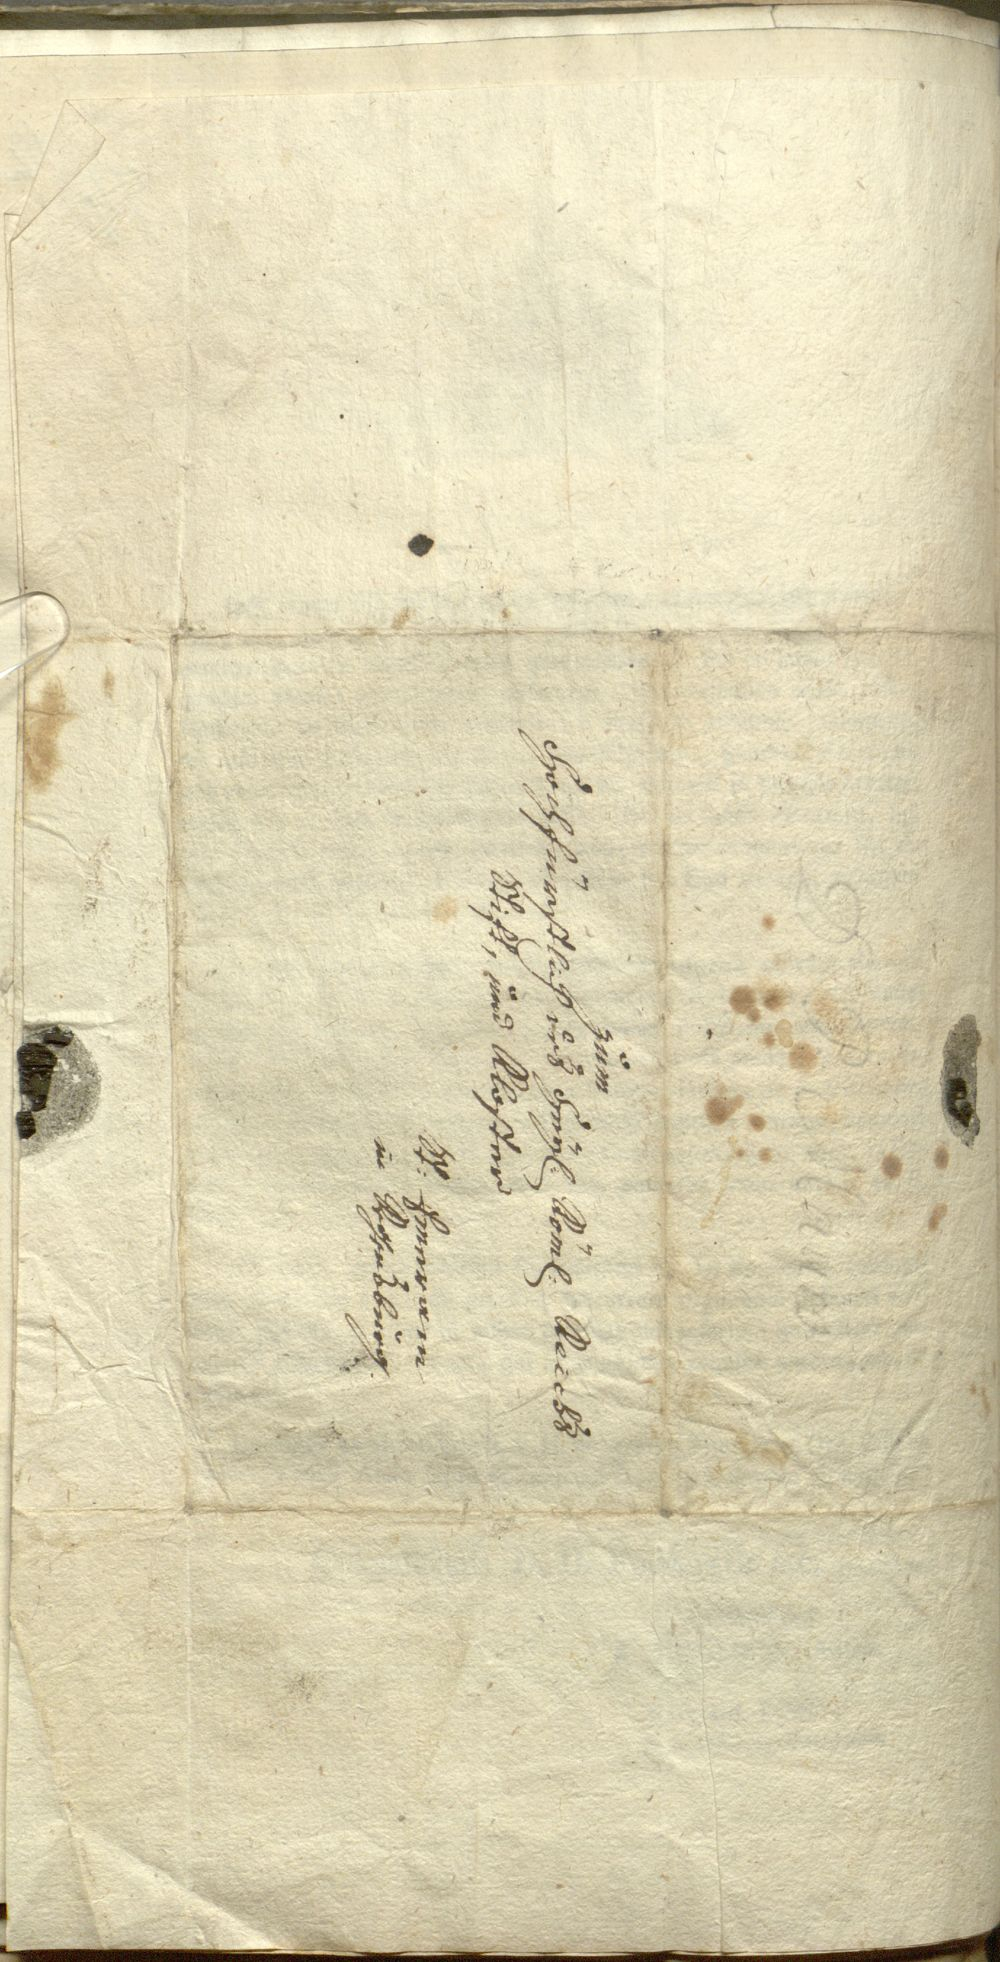 Zum
Hochfürstlich des Heyl: Röml: Reichs
Stift, und Kloster
St: Emeram
in Regensburg.